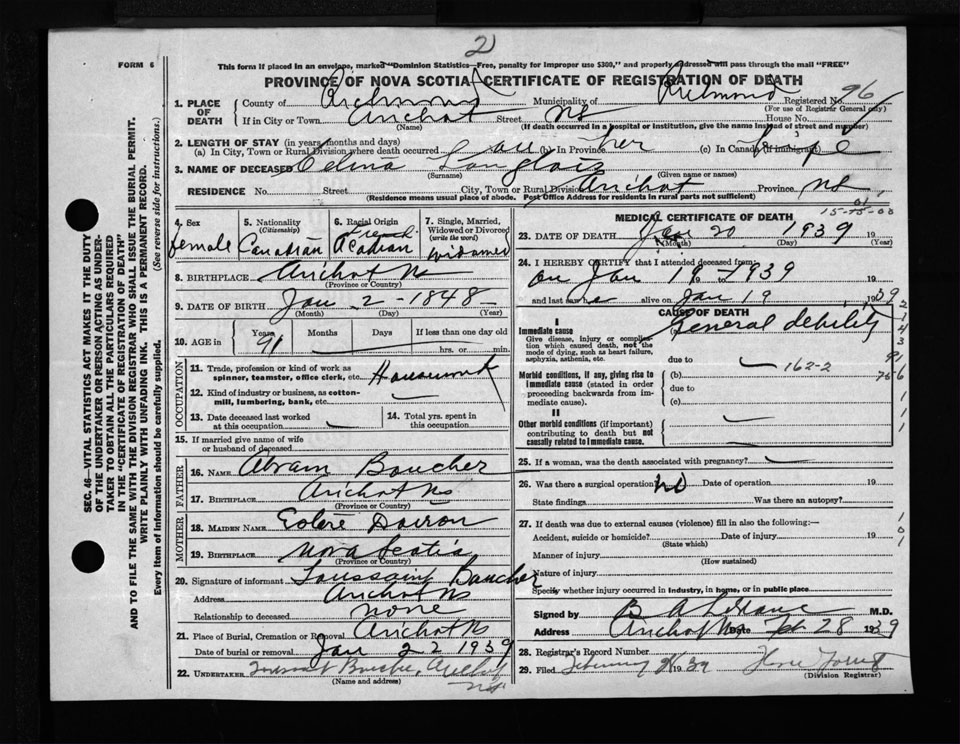 2
FORM 6
This form if placed in an envelope, marked "Dominion Statistics—Free, penalty for improper use $300," and properly addressed will pass through the mail "FREE"
PROVINCE OF NOVA SCOTIA—CERTIFICATE OF REGISTRATION OF DEATH
1. PLACE OF DEATH
County of Richmond Municipality of Richmond Registered No. 96
(For use of Registrar General only)
If in City or Town Arichat Street NS House No.
(Name) (If death occurred in a hospital or institution, give the name instead of street and number)
2. LENGTH OF STAY (in years, months and days)
(a) In City, Town or Rural Division where death occurred (b) In Province (c) In Canada (if immigrant) life
3. NAME OF DECEASED Celina Langlois
(Surname) (Given name or names)
RESIDENCE No. Street City, Town or Rural Division Arichat Province NS
(Residence means usual place of abode. Post Office Address for residents in rural parts not sufficient)
SEC. 46—VITAL STATISTICS ACT MAKES IT THE DUTY
OF THE UNDERTAKER OR PERSON ACTING AS UNDER-
TAKER TO OBTAIN ALL THE PARTICULARS REQUIRED
IN THE "CERTIFICATE OF REGISTRATION OF DEATH"
AND TO FILE THE SAME WITH THE DIVISION REGISTRAR WHO SHALL ISSUE THE BURIAL PERMIT.
WRITE PLAINLY WITH UNFADING INK. THIS IS A PERMANENT RECORD.
Every item of Information should be carefully supplied. (See reverse side for instructions.)
4. Sex
female
5. Nationality
(Citizenship)
Canadian
6. Racial Origin
French
Acadian
7. Single, Married, Widowed or Divorced
(write the word)
widowed
8. BIRTHPLACE Arichat NS
(Province or Country)
9. DATE OF BIRTH Jan 2 - 1848
(Month) (Day) (Year)
10. AGE in
Years Months Days If less than one day old
91 hrs. or min.
OCCUPATION
11. Trade, profession or kind of work as
spinner, teamster, office clerk, etc. Housework
12. Kind of industry or business, as cotton-
mill, lumbering, bank, etc.
13. Date deceased last worked
at this occupation
14. Total yrs. spent in
this occupation
15. If married give name of wife
or husband of deceased
FATHER
16. NAME Abram Boucher
17. BIRTHPLACE Arichat NS
(Province or Country)
MOTHER
18. MAIDEN NAME Doiron
19. BIRTHPLACE Nova Scotia
(Province or Country)
20. Signature of informant Toussaint Boucher
Address Arichat NS
Relationship to deceased none
21. Place of Burial, Cremation or Removal Arichat NS
Date of burial or removal Jan 22 1939
22. UNDERTAKER Arichat
NS
(Name and address)
MEDICAL CERTIFICATE OF DEATH
23. DATE OF DEATH Jan 20 1939
(Month) (Day) (Year)
24. I HEREBY CERTIFY that I attended deceased from:
on Jan 19 - 1939 19
and last saw h alive on Jan 19 1939
CAUSE OF DEATH
I
Immediate cause General debility
Give disease, injury or complica-
tion which caused death, not the
mode of dying, such as heart failure,
asphyxia, asthenia, etc.
due to
Morbid conditions, if any, giving rise to
immediate cause (stated in order
proceeding backwards from im-
mediate cause).
(b) 162-2
due to
(c)
II
Other morbid conditions (if important)
contributing to death but not
causally related to immediate cause.
25. If a woman, was the death associated with pregnancy?
26. Was there a surgical operation? no Date of operation 19
State findings Was there an autopsy?
27. If death was due to external causes (violence) fill in also the following:—
Accident, suicide or homicide? Date of injury 19
(State which)
Manner of injury
(How sustained)
Nature of injury
Specify whether injury occurred in industry, in home, or in public place
Signed by B A LeBlanc M.D.
Address Arichat NS Date Feb 28 1939
28. Registrar's Record Number
29. Filed February 1939
(Division Registrar)